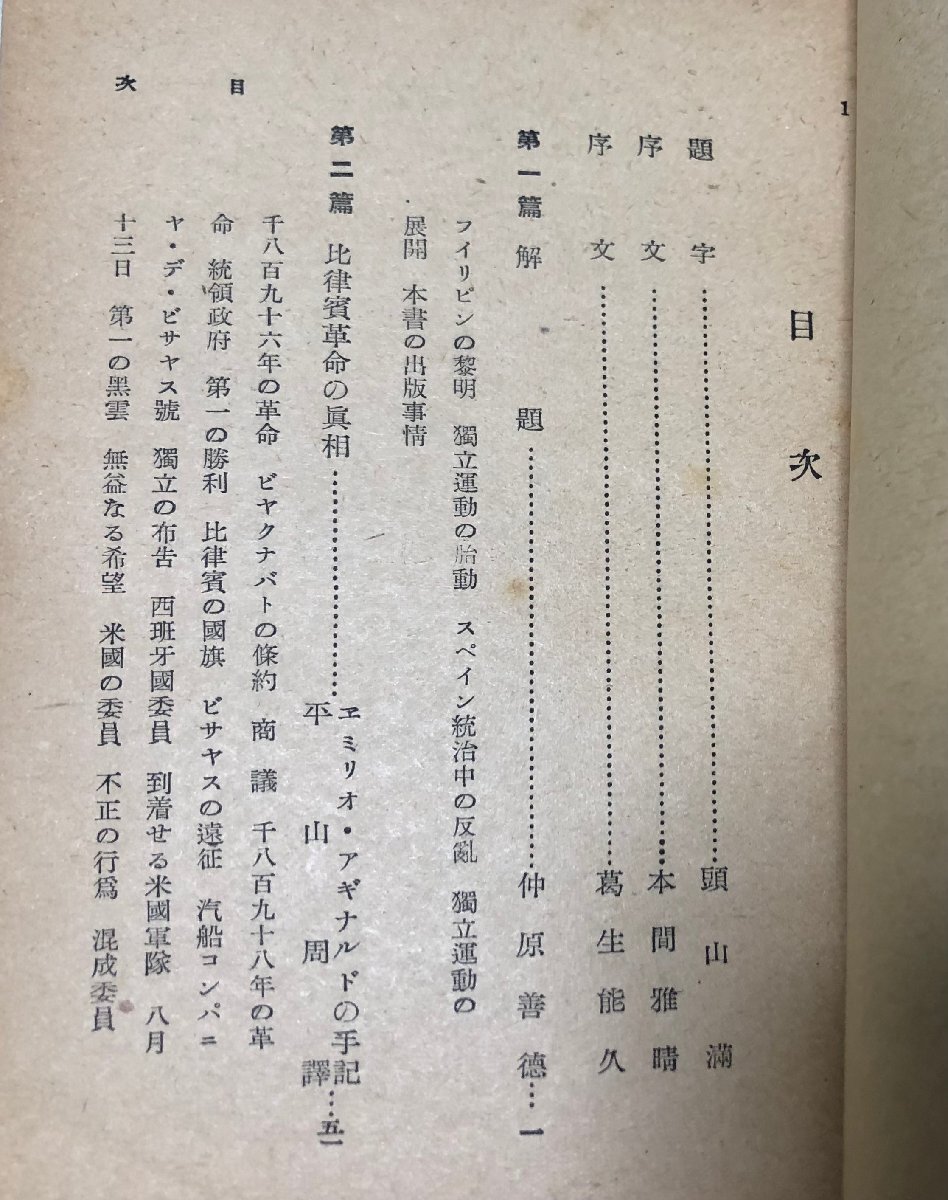 1
目次
題字……頭山滿
序文……本間雅晴
序文……葛生能久
第一篇 解題……仲原善德……一
フイリピンの黎明 獨立運動の胎動 スペイン統治中の反亂 獨立運動の
展開 本書の出版事情
第二篇 比律賓革命の眞相……エミリオ・アギナルドの手記
平山周譯……五一
千八百九十六年の革命 ビヤクナバトの條約 商議 千八百九十八年の革
命 統領政府 第一の勝利 比律賓の國旗 ビサヤスの遠征 汽船コンパニ
ヤ・デ・ビサヤス號 獨立の布吿 西班牙國委員 到着せる米國軍隊 八月
十三日 第一の黑雲 無益なる希望 米國の委員 不正の行爲 混成委員
目次